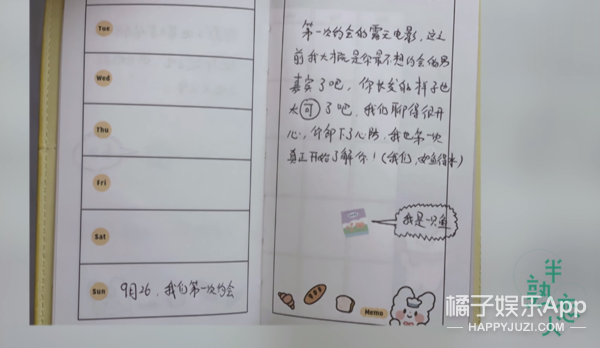 Tue
Wed
Thu
Fri
Sat
Sun
9月26，我们第一次约会
第一次约会的露天电影，这之
前我大概是你最不想约会的男
嘉宾了吧，你长发的样子也
太可了吧，我们聊得很开
心，你卸下了心防，我也第一次
真正开始了解你！（我们，
我是一只鱼
Memo
半熟恋人
橘子娱乐App
HAPPYJUZI.COM